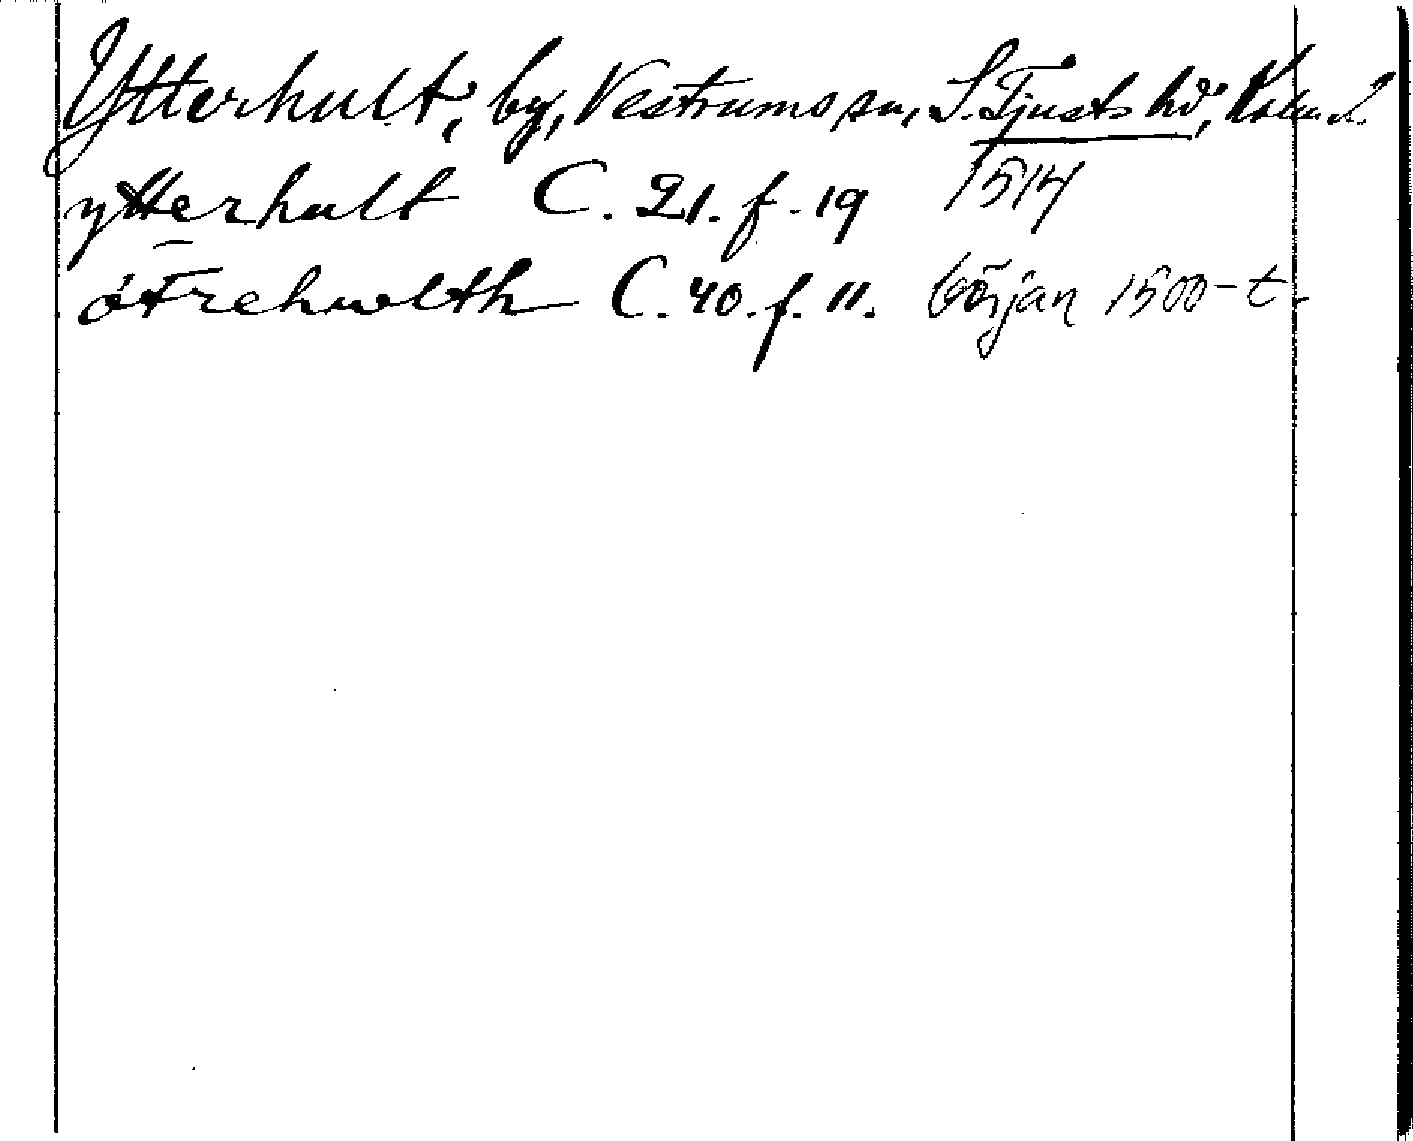 Ytterhult, by, Vestrums sn, S. Tjusts hd, Kalm. L.
ytterhult C. 21. f. 19 1514
òtrehwlth C. 40. f. 11. början 1500-t.